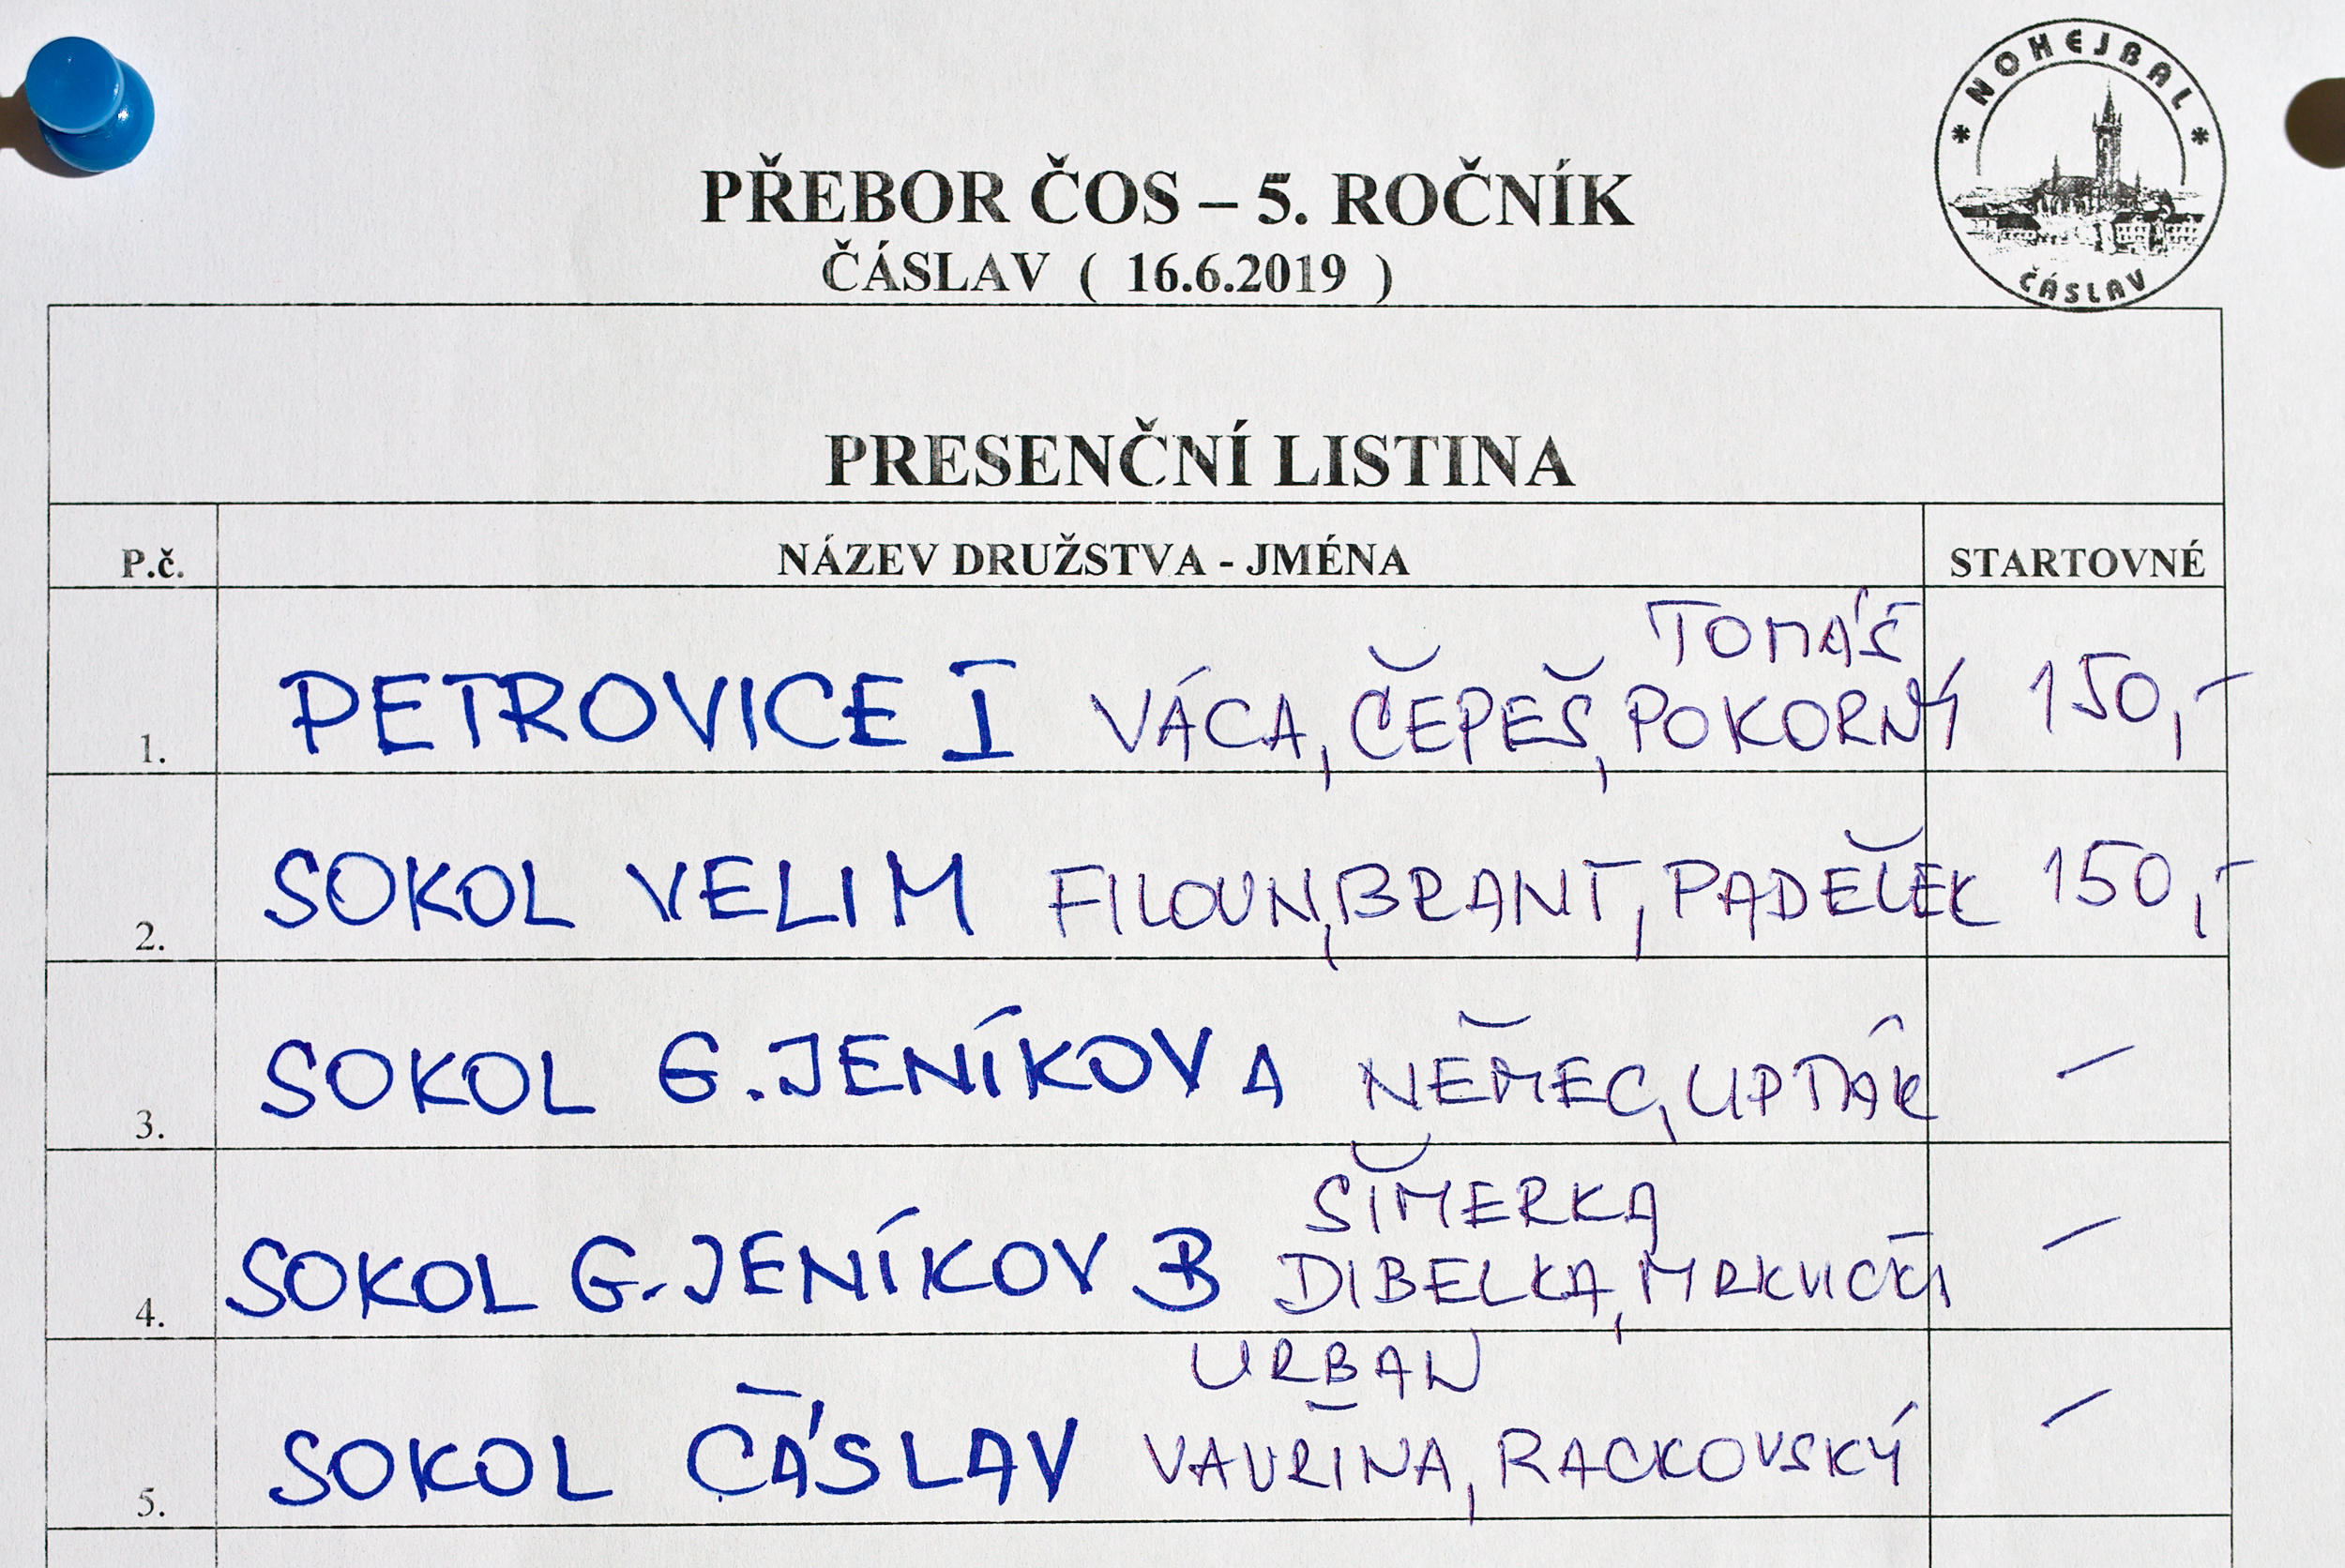 NOHEJBAL
ČÁSLAV
PŘEBOR ČOS – 5. ROČNÍK
ČÁSLAV ( 16.6.2019 )
PRESENČNÍ LISTINA
P.č. NÁZEV DRUŽSTVA - JMÉNA STARTOVNÉ
TOMÁŠ
1. PETROVICE I VÁCA, ČEPEŠ, POKORNÝ 150,-
2. SOKOL VELIM FILOUN, BRANT, PADĚLEK 150,-
3. SOKOL G. JENÍKOV A NĚMEC, LIPŤÁK –
ŠIMERKA
4. SOKOL G. JENÍKOV B DIBELKA, MRKVIČKA –
URBAN
5. SOKOL ČÁSLAV VAVŘINA, RACKOVSKÝ –